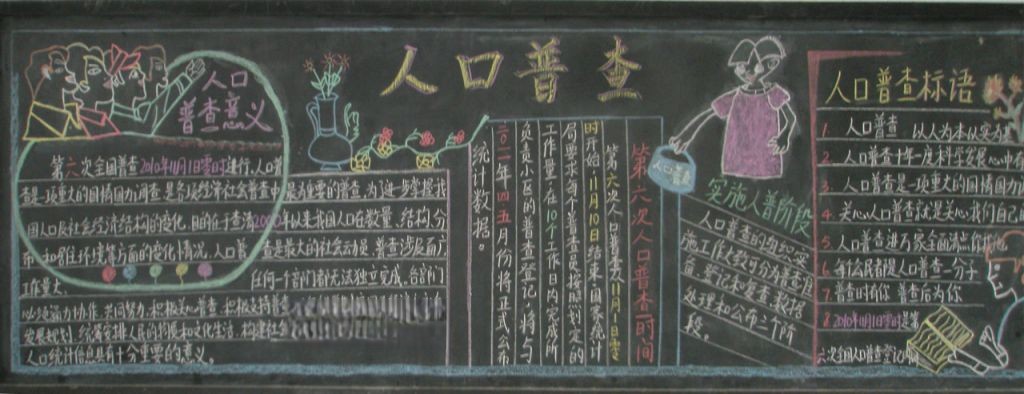 人口普查
人口
普查意义
第六次全国普查2010年11月1日零时进行,人口普
查是一项重大的国情国力调查,是各项经济社会普查中最为重要的普查,为进一步掌握我
国人口及社会经济结构的变化,目的在于查清2000年以来我国人口在数量、结构、分
布和居住环境等方面的变化情况,人口普查是最大的社会动员,普查涉及面广
工作量大,任何一个部门都无法独立完成,各部门
以须协力协作,共同努力,把极关心普查,积极支持普
发展规划,统筹安排人民的物质和文化生活,构建社会
人口统计信息具有十分重要的意义。
第六次人口普查时间
第六次人口普查从11月1日零
时开始,11月10日结束,国家统计
局要求每个普查员按照划定的
工作量,在10个工作日内完成所
负责小区的普查登记,将与
二〇一一年四五月份将正式公布
统计数据。
实施人普阶段
人口普查的组织实
施工作大致可分为普查准
备、登记和复查、数据
处理和公布三个阶
段。
人口普查标语
1. 人口普查 以人为本 从实
2. 人口普查十年一度 科学发展心中有
3. 人口普查是一项重大的国情国力
4. 关心人口普查就是关心我们自己
5. 人口普查进万家 全面清点你我他
6. 每个民都是人口普查一分子
7. 普查时有你 普查后为你
8. 2010年11月1日零时是第
六次全国人口普查登记